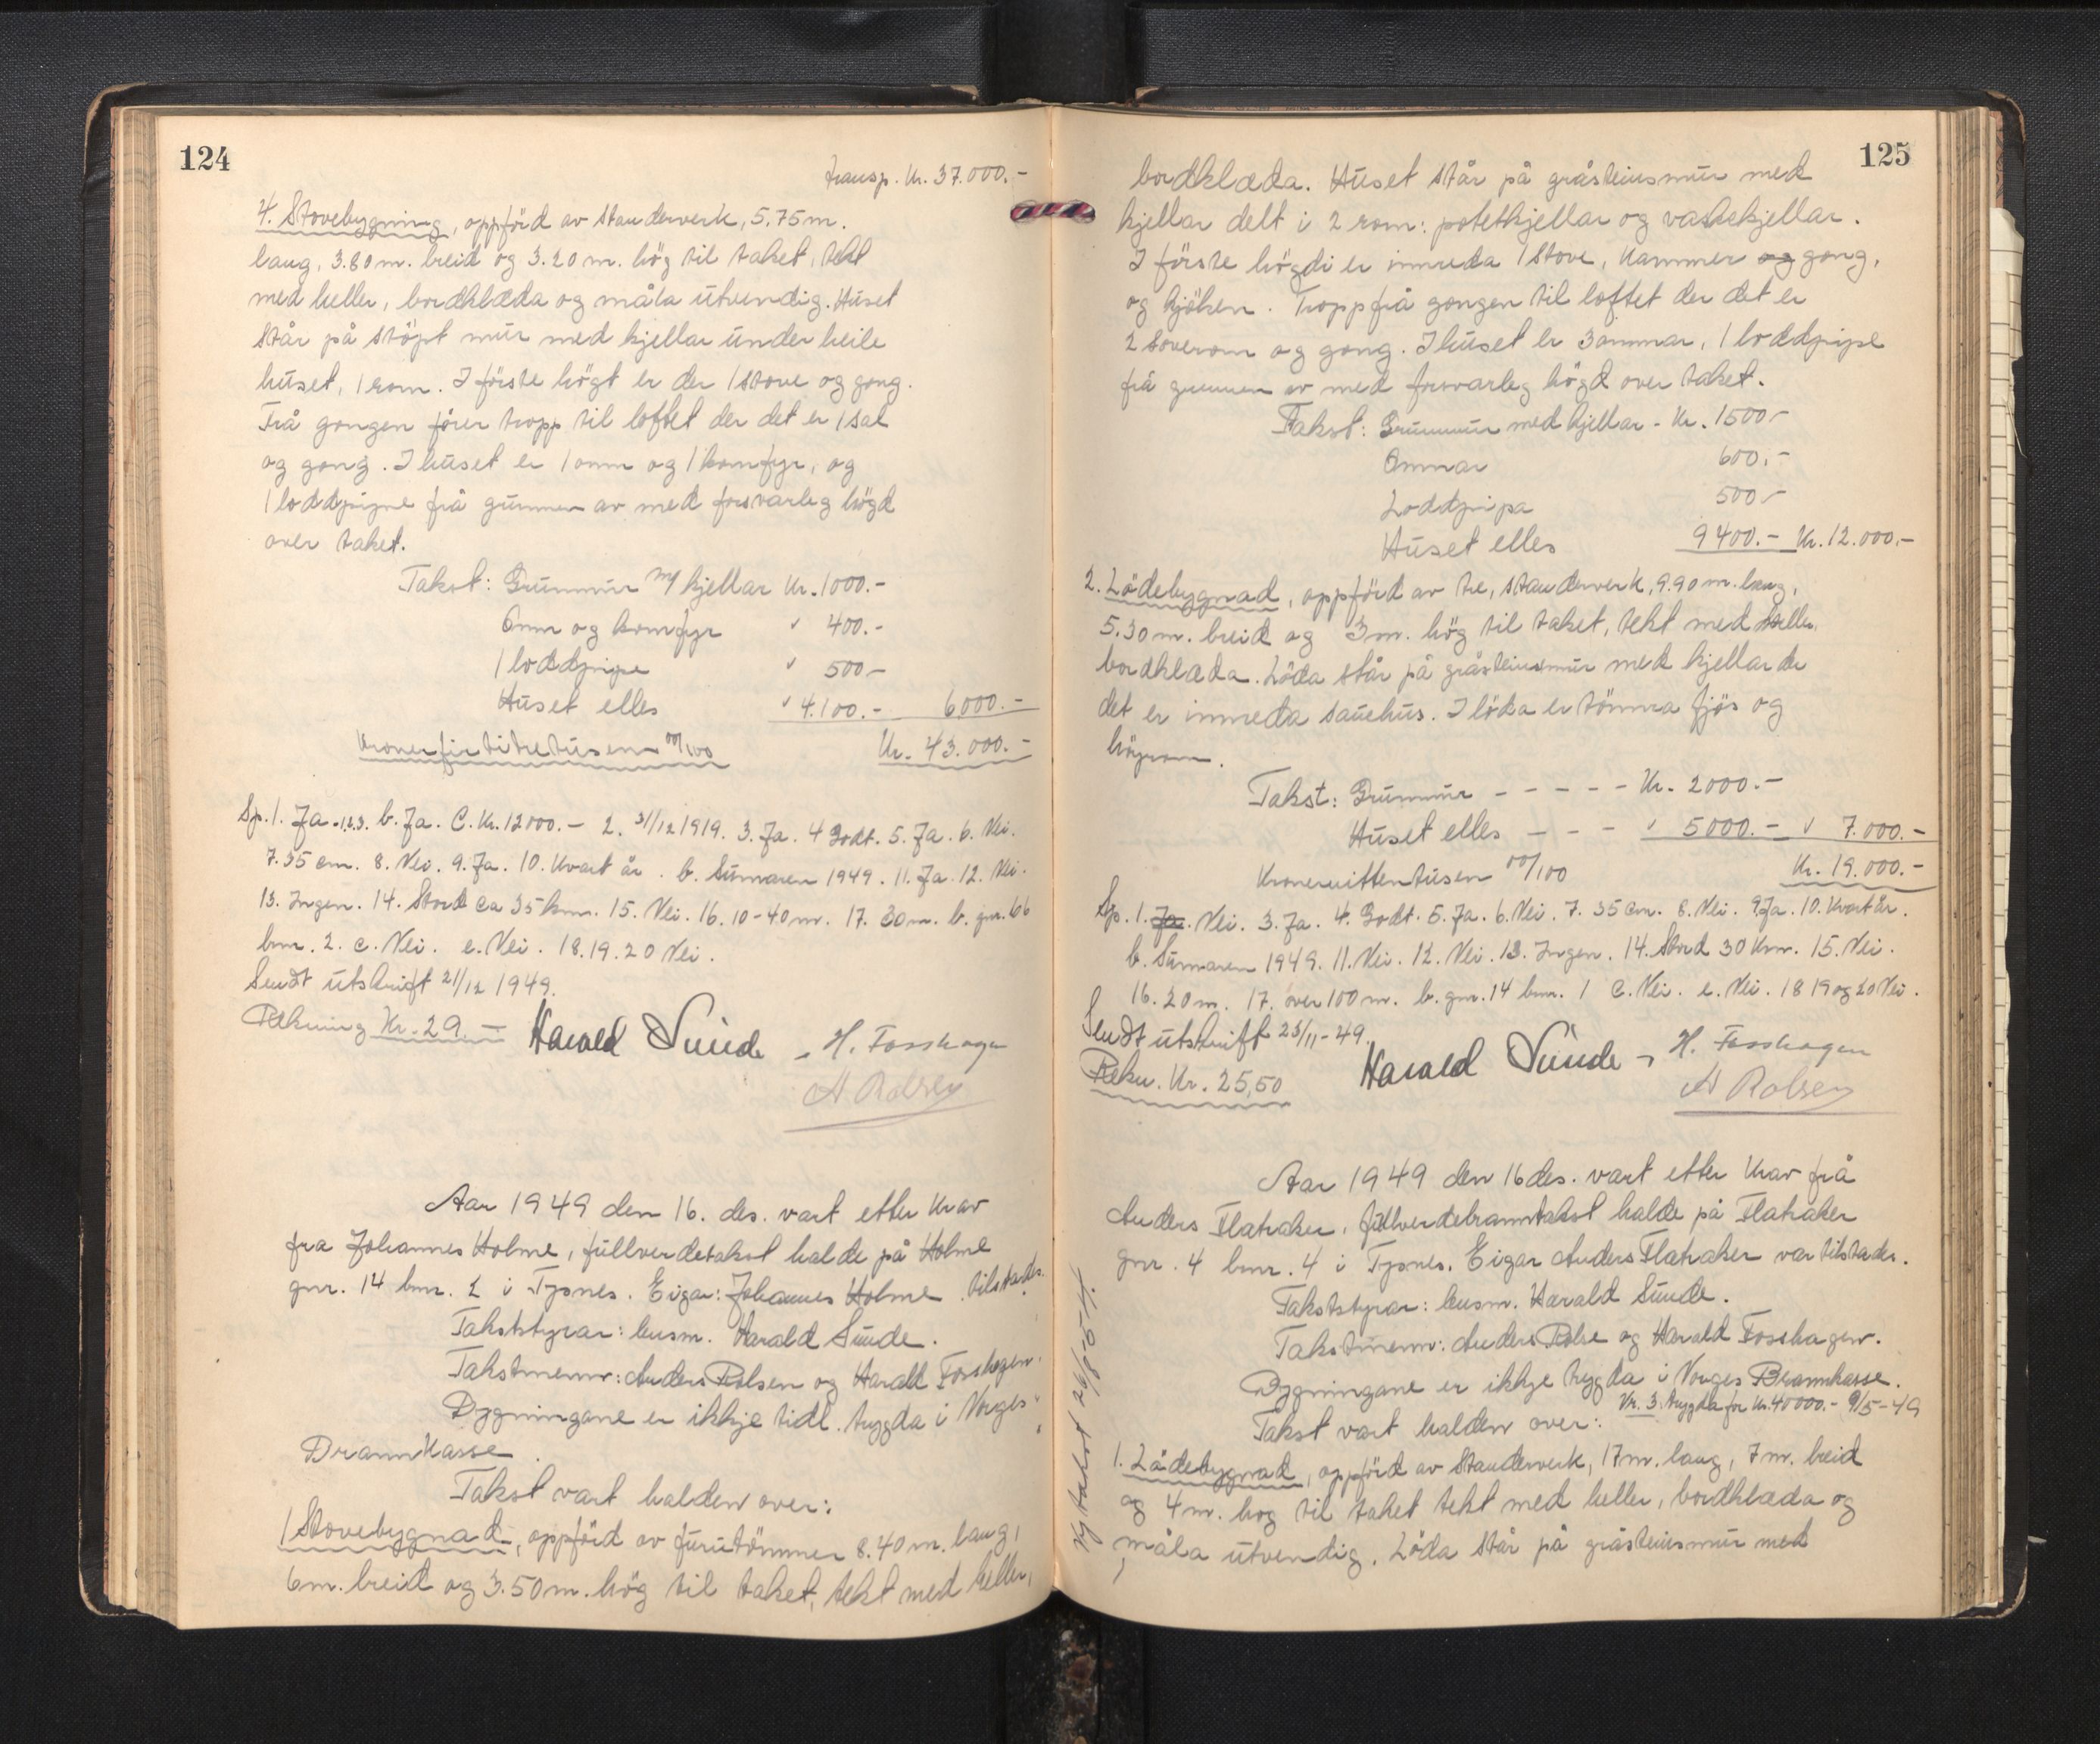 124
transp. Kr. 37.000.-
4. Stovebygning, oppförd av standerverk, 5.75 m.
lang, 3.80 m. breid og 3.20 m. hög til taket, tekt
med heller, bordklæda og måla utvendig. Huset
står på stöpt mur med kjellar under heile
huset, 1 rom. I förste högt er der 1 stove og gong.
Frå gongen förer tropp til loftet der det er 1 sal
og gong. I huset er 1 omn og 1 komfyr, og
1 loddpipe frå grunnen av med forsvarleg högd
over taket.
Takst: Grunnmur m/ kjellar Kr. 1000.-
Omn og komfyr " 400.-
1 loddpipe " 500-
Huset elles " 4.100.- 6000.-
Kroner förtitretusen 00/100 Kr. 43.000.-
Sp. 1. Ja. 1,2,3. b. Ja. C. Kr. 12000.- 2. 31/12 1919. 3. Ja. 4 Godt. 5. Ja. 6. Nei.
7. 35 cm. 8. Nei. 9. Ja. 10. Kvart år. b. Sumaren 1949. 11. Ja. 12. Nei.
13. Ingen. 14. Stord ca 35 km. 15. Nei. 16. 10-40 m. 17. 30 m. b. gnr. 66
bnr. 2. c. Nei. e. Nei. 18. 19. 20 Nei.
Sendt utskrift 21/12 1949.
Rekning Kr. 29.- Harald Sunde - H. Fosshagen
A Rolsen
Aar 1949 den 16. des. vart etter krav
fra Johannes Holme, fullverdetakst halde på Holme
gnr. 14 bnr. 2 i Tysnes. Eigar: Johannes Holme tilstades.
Takststyrar: lensm. Harald Sunde.
Takstmenn: Anders Rolsen og Harald Fosshagen.
Bygningane er ikkje tidl. trygda i Norges
Brannkasse.
Takst vart halden over:
1 Stovebygnad, oppförd av furutömmer 8.40 m. lang,
6 m. breid og 3.50 m. hög til taket, tekt med heller,
125
bordklæda. Huset står på gråsteinsmur med
kjellar delt i 2 rom: potetkjellar og vaskekjellar.
I förste högdi er innreda 1 stove, kammer og gong,
og kjöken. Tropp frå gongen til loftet der det er
2 soverom og gong. I huset er 3 omnar, 1 loddpipe
frå grunnen av med forsvarleg högd over taket.
Takst: Grunnmur med kjellar - Kr. 1500-
Omnar 600.-
Loddpipa 500-
Huset elles 9400.- Kr. 12.000.-
2. Lödebygnad, oppförd av tre, standerverk, 9.90 m. lang,
5.30 m. breid og 3 m. hög til taket, tekt med heller,
bordklæda. Löda står på gråsteinsmur med kjellar der
det er innreda sauehus. I löda er tömra fjös og
höyrom.
Takst: Grunnmur - - - - - Kr. 2000.-
Huset elles - - - " 5000.- " 7.000.-
Kroner nitten tusen 00/100 Kr. 19.000.-
Sp. 1. Ja. Nei. 3. Ja. 4. Godt. 5. Ja. 6. Nei. 7. 35 cm. 8. Nei. 9 Ja. 10. Kvart år.
b. Sumaren 1949. 11. Nei. 12. Nei. 13. Ingen. 14. Stord 30 Km. 15. Nei.
16. 20 m. 17. over 100 m. b. gnr. 14 bnr. 1 c. Nei. e. Nei. 18 19 og 20 Nei.
Sendt utskrift 23/11-49.
Rekn. Kr. 25,50 Harald Sunde - H. Fosshagen
A Rolsen
Aar 1949 den 16 des. vart etter krav frå
Anders Flatråker, fullverdebranntakst halde på Flatråker
gnr. 4 bnr. 4 i Tysnes. Eigar Anders Flatråker var tilstades.
Takststyrar: lensm. Harald Sunde.
Takstmenn: Anders Rolse og Harald Fosshagen.
Bygningane er ikkje trygda i Norges Brannkasse.
Nr. 3 trygda for Kr. 40000.- 9/5-49
Takst vart halden over:
1. Lödebygnad, oppförd av standerverk, 17 m. lang, 7 m. breid
og 4 m. hög til taket tekt med heller, bordklæda og
måla utvendig. Löda står på gråsteinsmur med
Ny takst 26/8-54.